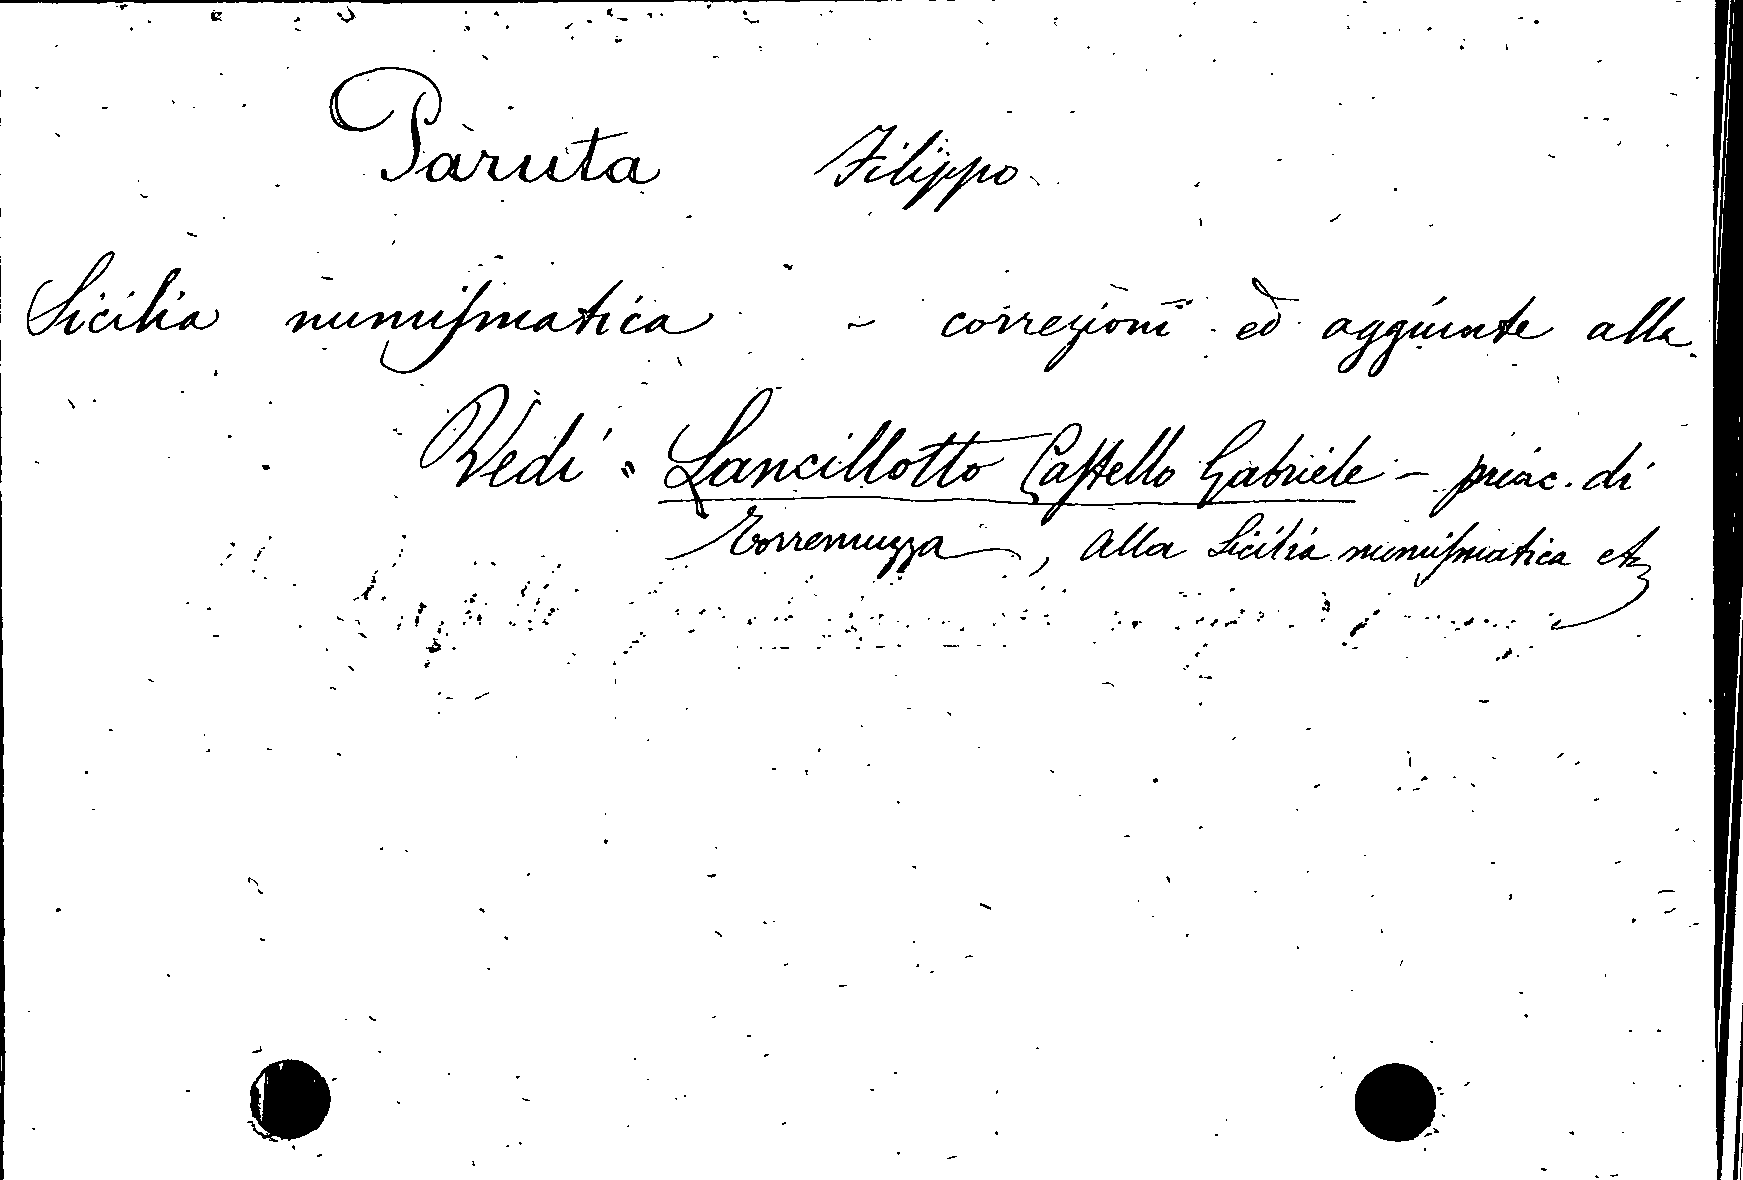 Paruta Filippo
Sicilia numiſmatica - correzioni ed aggiunte alla
Vedi " Lancillotto Caſtello Gabriele - princ. di
Torremuzza, Alla Sicilia numiſmatica etc